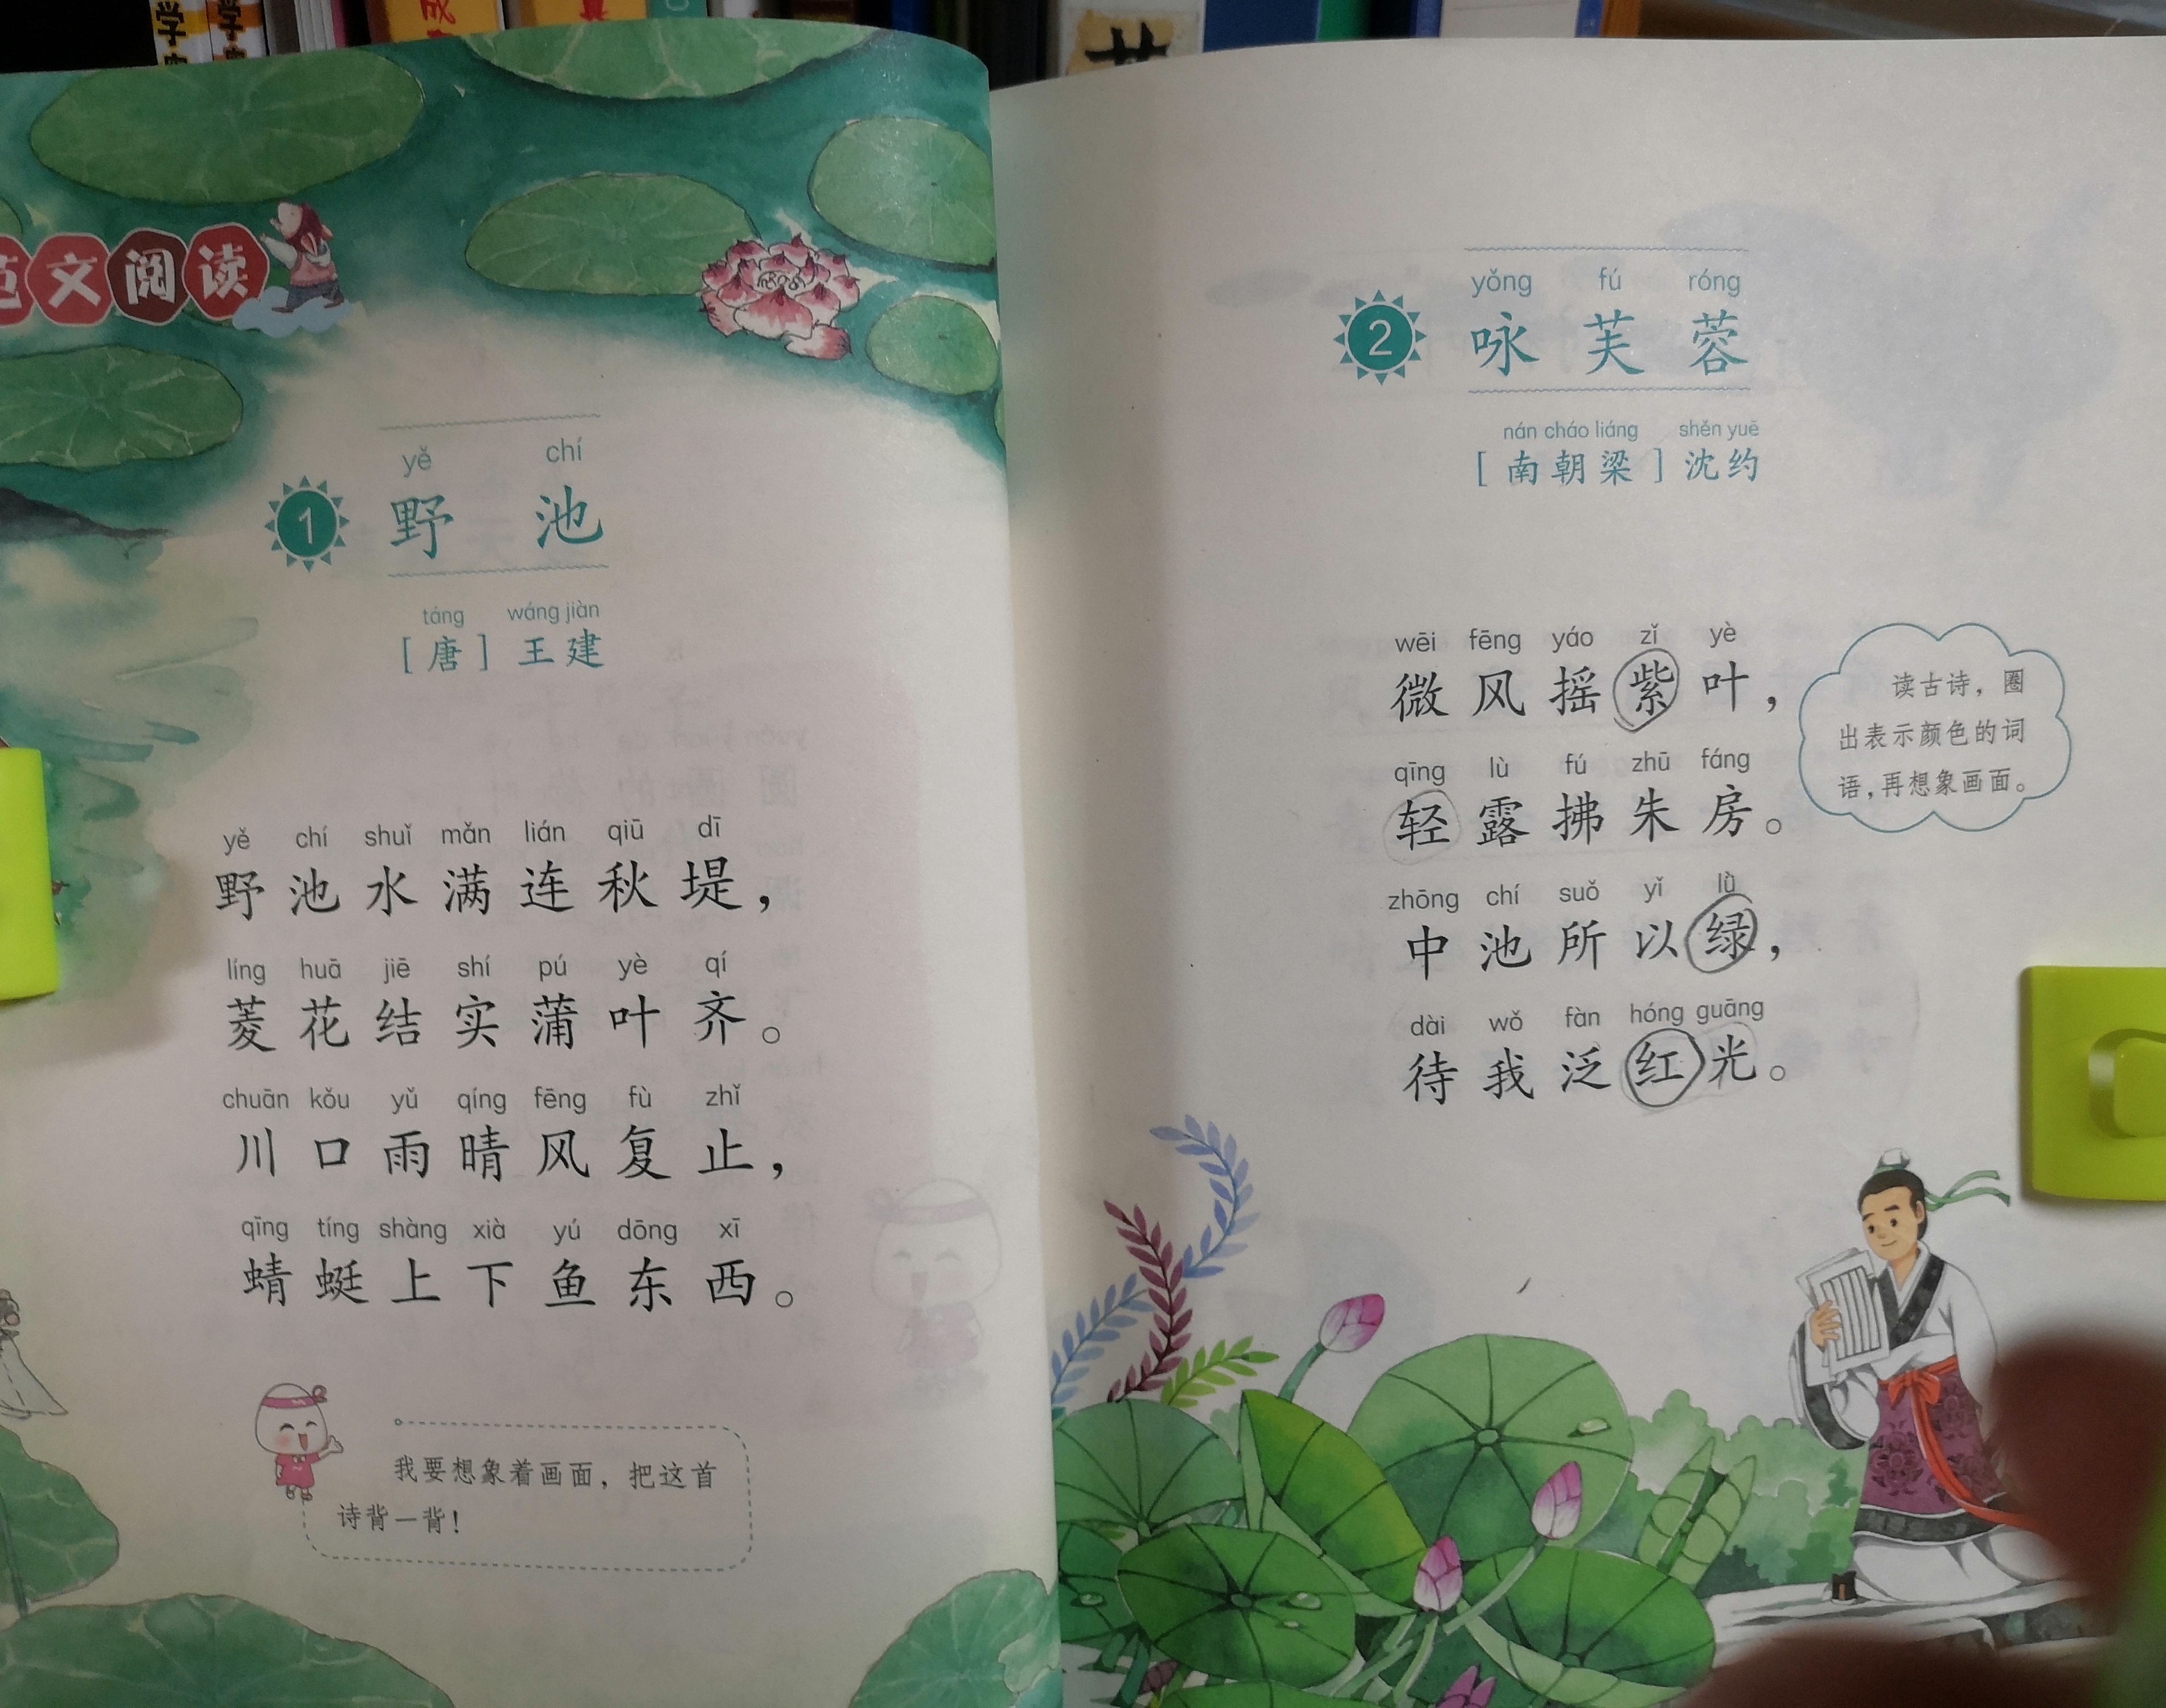 文阅读
yě chí
1 野池
táng wáng jiàn
[唐] 王建
yě chí shuǐ mǎn lián qiū dī
野池水满连秋堤，
líng huā jiē shí pú yè qí
菱花结实蒲叶齐。
chuān kǒu yǔ qíng fēng fù zhǐ
川口雨晴风复止，
qīng tíng shàng xià yú dōng xī
蜻蜓上下鱼东西。
我要想象着画面，把这首
诗背一背！
yǒng fú róng
2 咏芙蓉
nán cháo liáng shěn yuē
[南朝梁] 沈约
wēi fēng yáo zǐ yè
微风摇紫叶，
qīng lù fú zhū fáng
轻露拂朱房。
zhōng chí suǒ yǐ lǜ
中池所以绿，
dài wǒ fàn hóng guāng
待我泛红光。
读古诗，圈
出表示颜色的词
语，再想象画面。